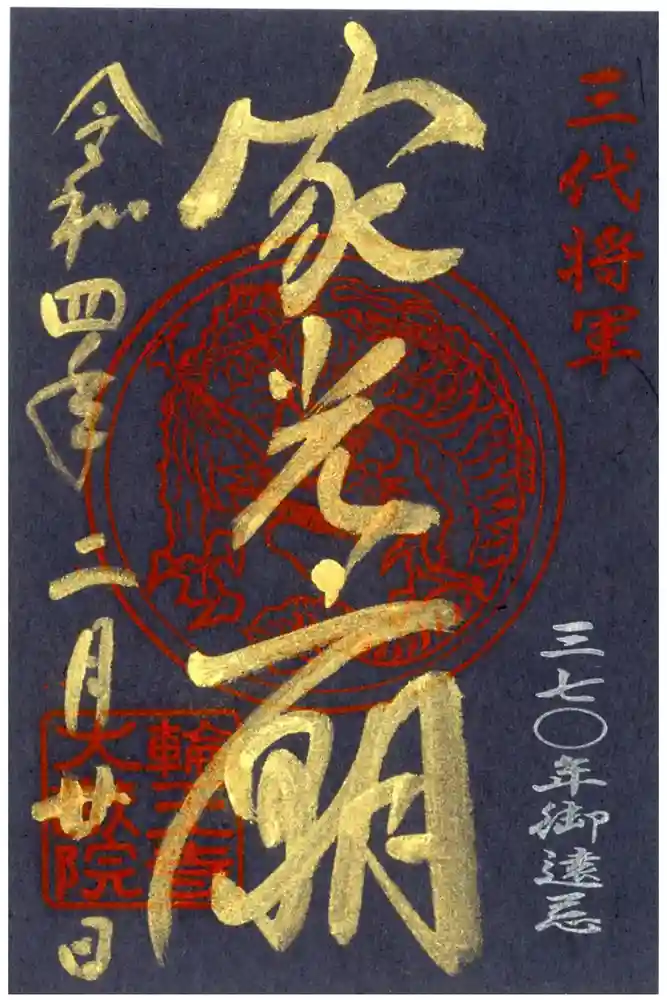 三代将軍
三七〇年御遠忌
家光廟
令和四年二月廿日
輪王寺
大猷院